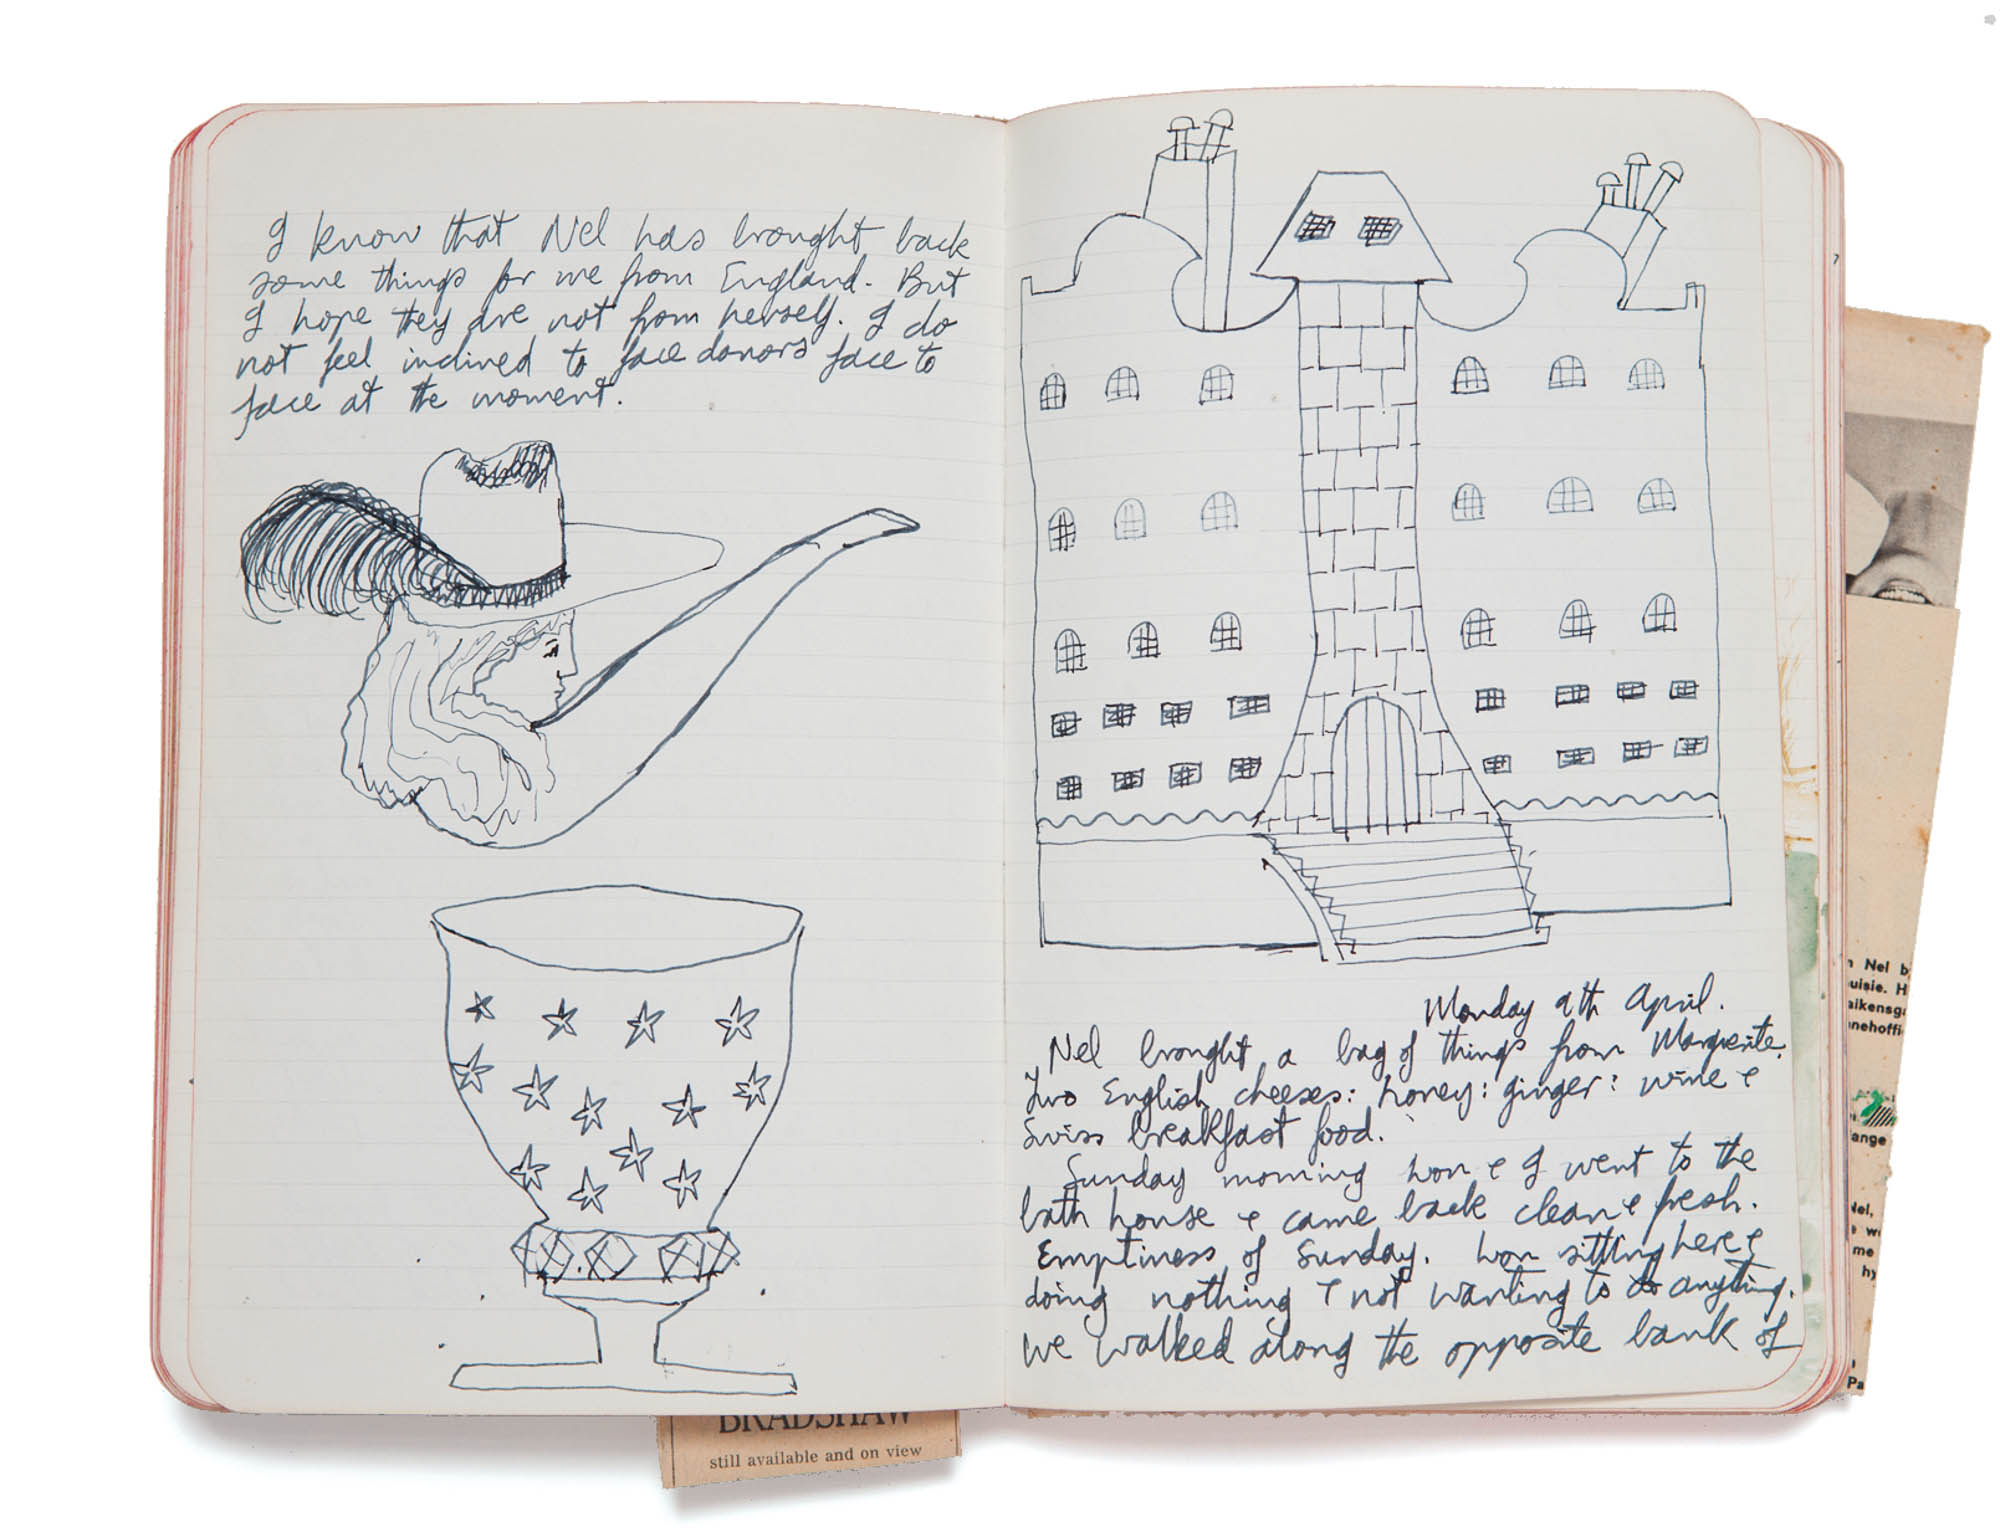 I know that Nel has brought back
some things for me from England. But
I hope they are not from herself. I do
not feel inclined to face donors face to
face at the moment.
Monday 9th April.
Nel brought a bag of things from Marguerite.
Two English cheeses: honey: ginger: wine &
Swiss breakfast food.
Sunday morning won & I went to the
bath house & came back clean & fresh.
Emptiness of Sunday. won sitting here &
doing nothing & not wanting to do anything.
We walked along the opposite bank of
BRADSHAW
still available and on view
n Nel b
uisie. H
aikensga
nehoffi
ange
Nel,
e w
me
hy
Pa